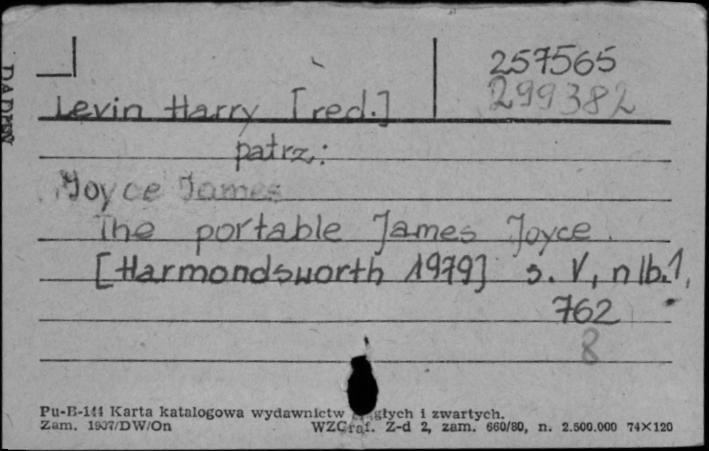 257565
299382
Levin Harry [red.]
patrz:
Joyce James
The portable James Joyce.
[Harmondsworth 1979] s. V, nlb. 1,
762
8
Pu-B-144 Karta katalogowa wydawnictw ciągłych i zwartych.
Zam. 1937/DW/On WZGraf. Z-d 2, zam. 660/80, n. 2.500.000 74×120